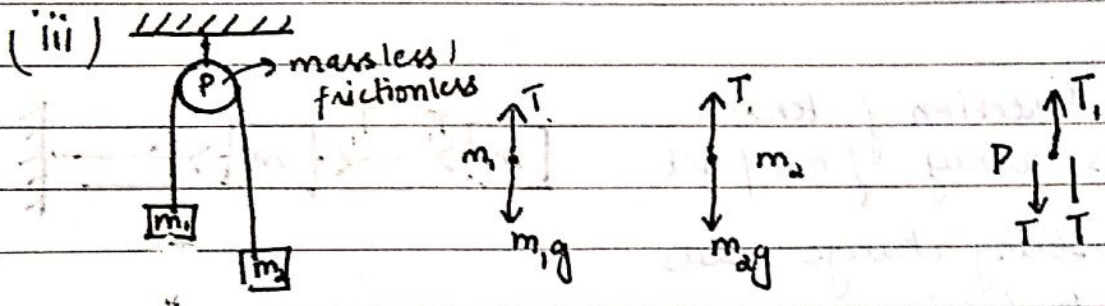 (iii)
P → massless,
frictionless
m₁
m₂
T
m₁
m₁g
T
m₂
m₂g
T₁
P
T T